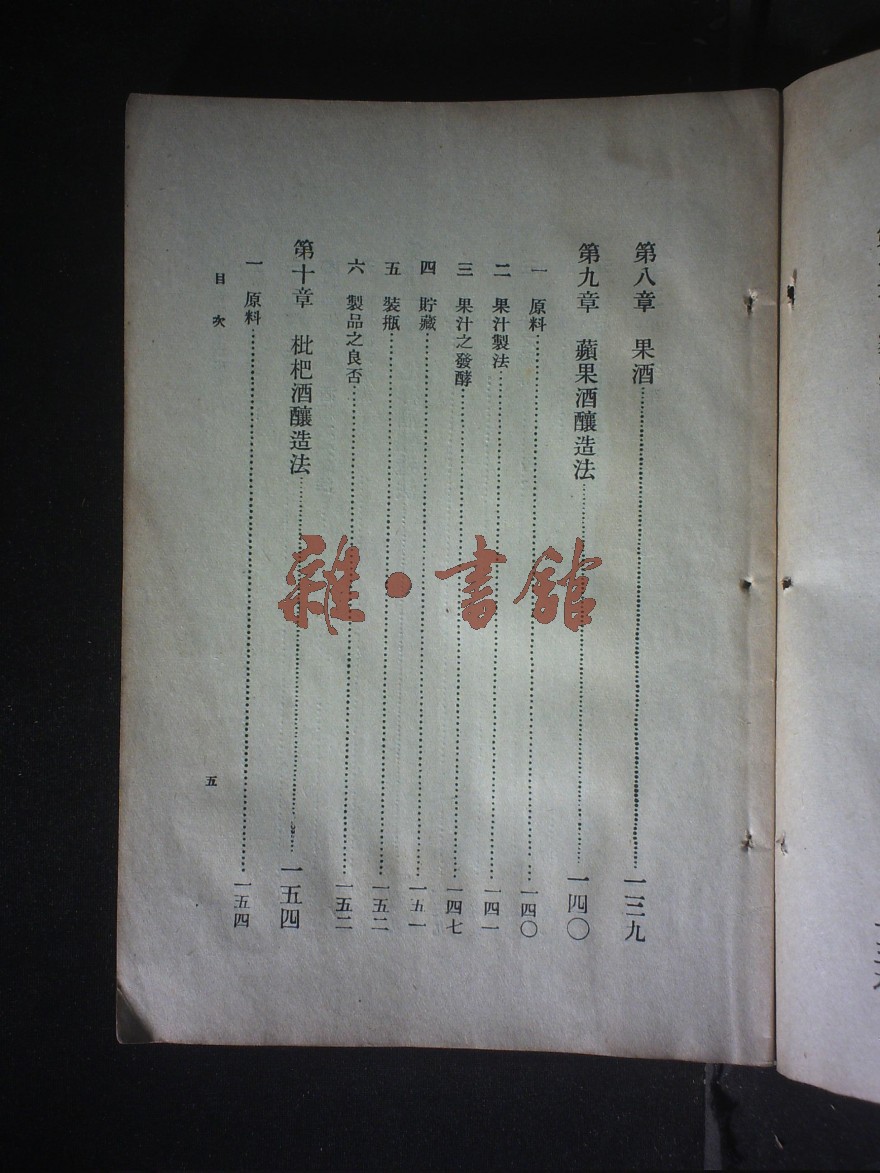 第八章 果酒……一三九
第九章 蘋果酒釀造法……一四〇
一 原料……一四〇
二 果汁製法……一四一
三 果汁之發酵……一四七
四 貯藏……一五一
五 裝瓶……一五二
六 製品之良否……一五二
第十章 枇杷酒釀造法……一五四
一 原料……一五四
目次
五
雜·書館